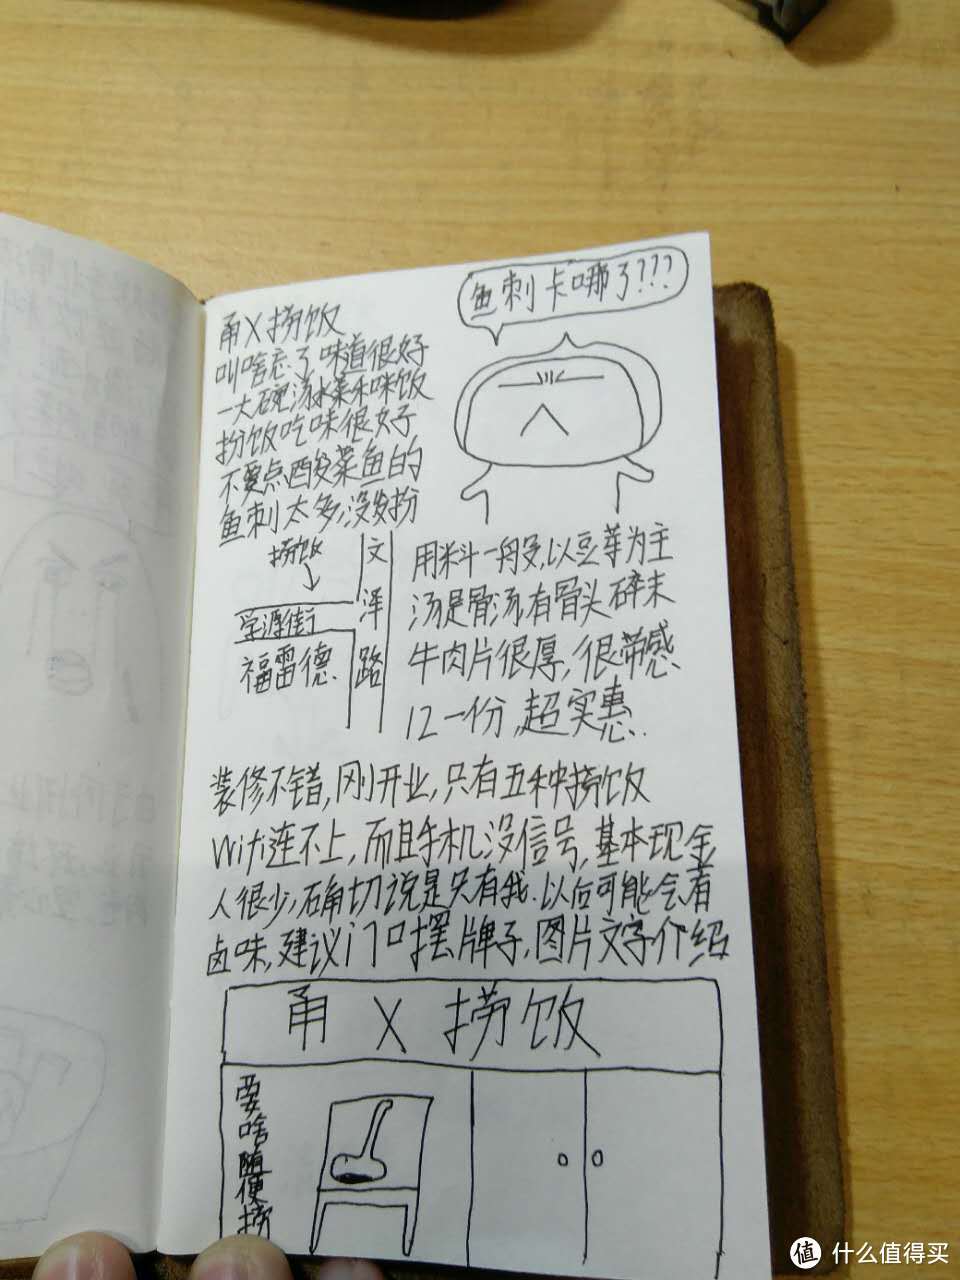 鱼刺卡哪了???
甬X捞饭
叫啥忘了味道很好
一大碗汤水菜和咪饭
扮饭吃味很好
不要点酸菜鱼的
鱼刺太多,没发扮
捞饭
文泽路
学源街
福雷德
用料一般,以豆芽为主
汤是骨汤,有骨头碎末
牛肉片很厚,很带感
12一份,超实惠.
装修不错,刚开业,只有五种捞饭
Wifi连不上,而且手机没信号,基本现金
人很少,确切说是只有我.以后可能会有
卤味,建议门口摆牌子,图片文字介绍
甬X捞饭
要啥随便捞
值 什么值得买